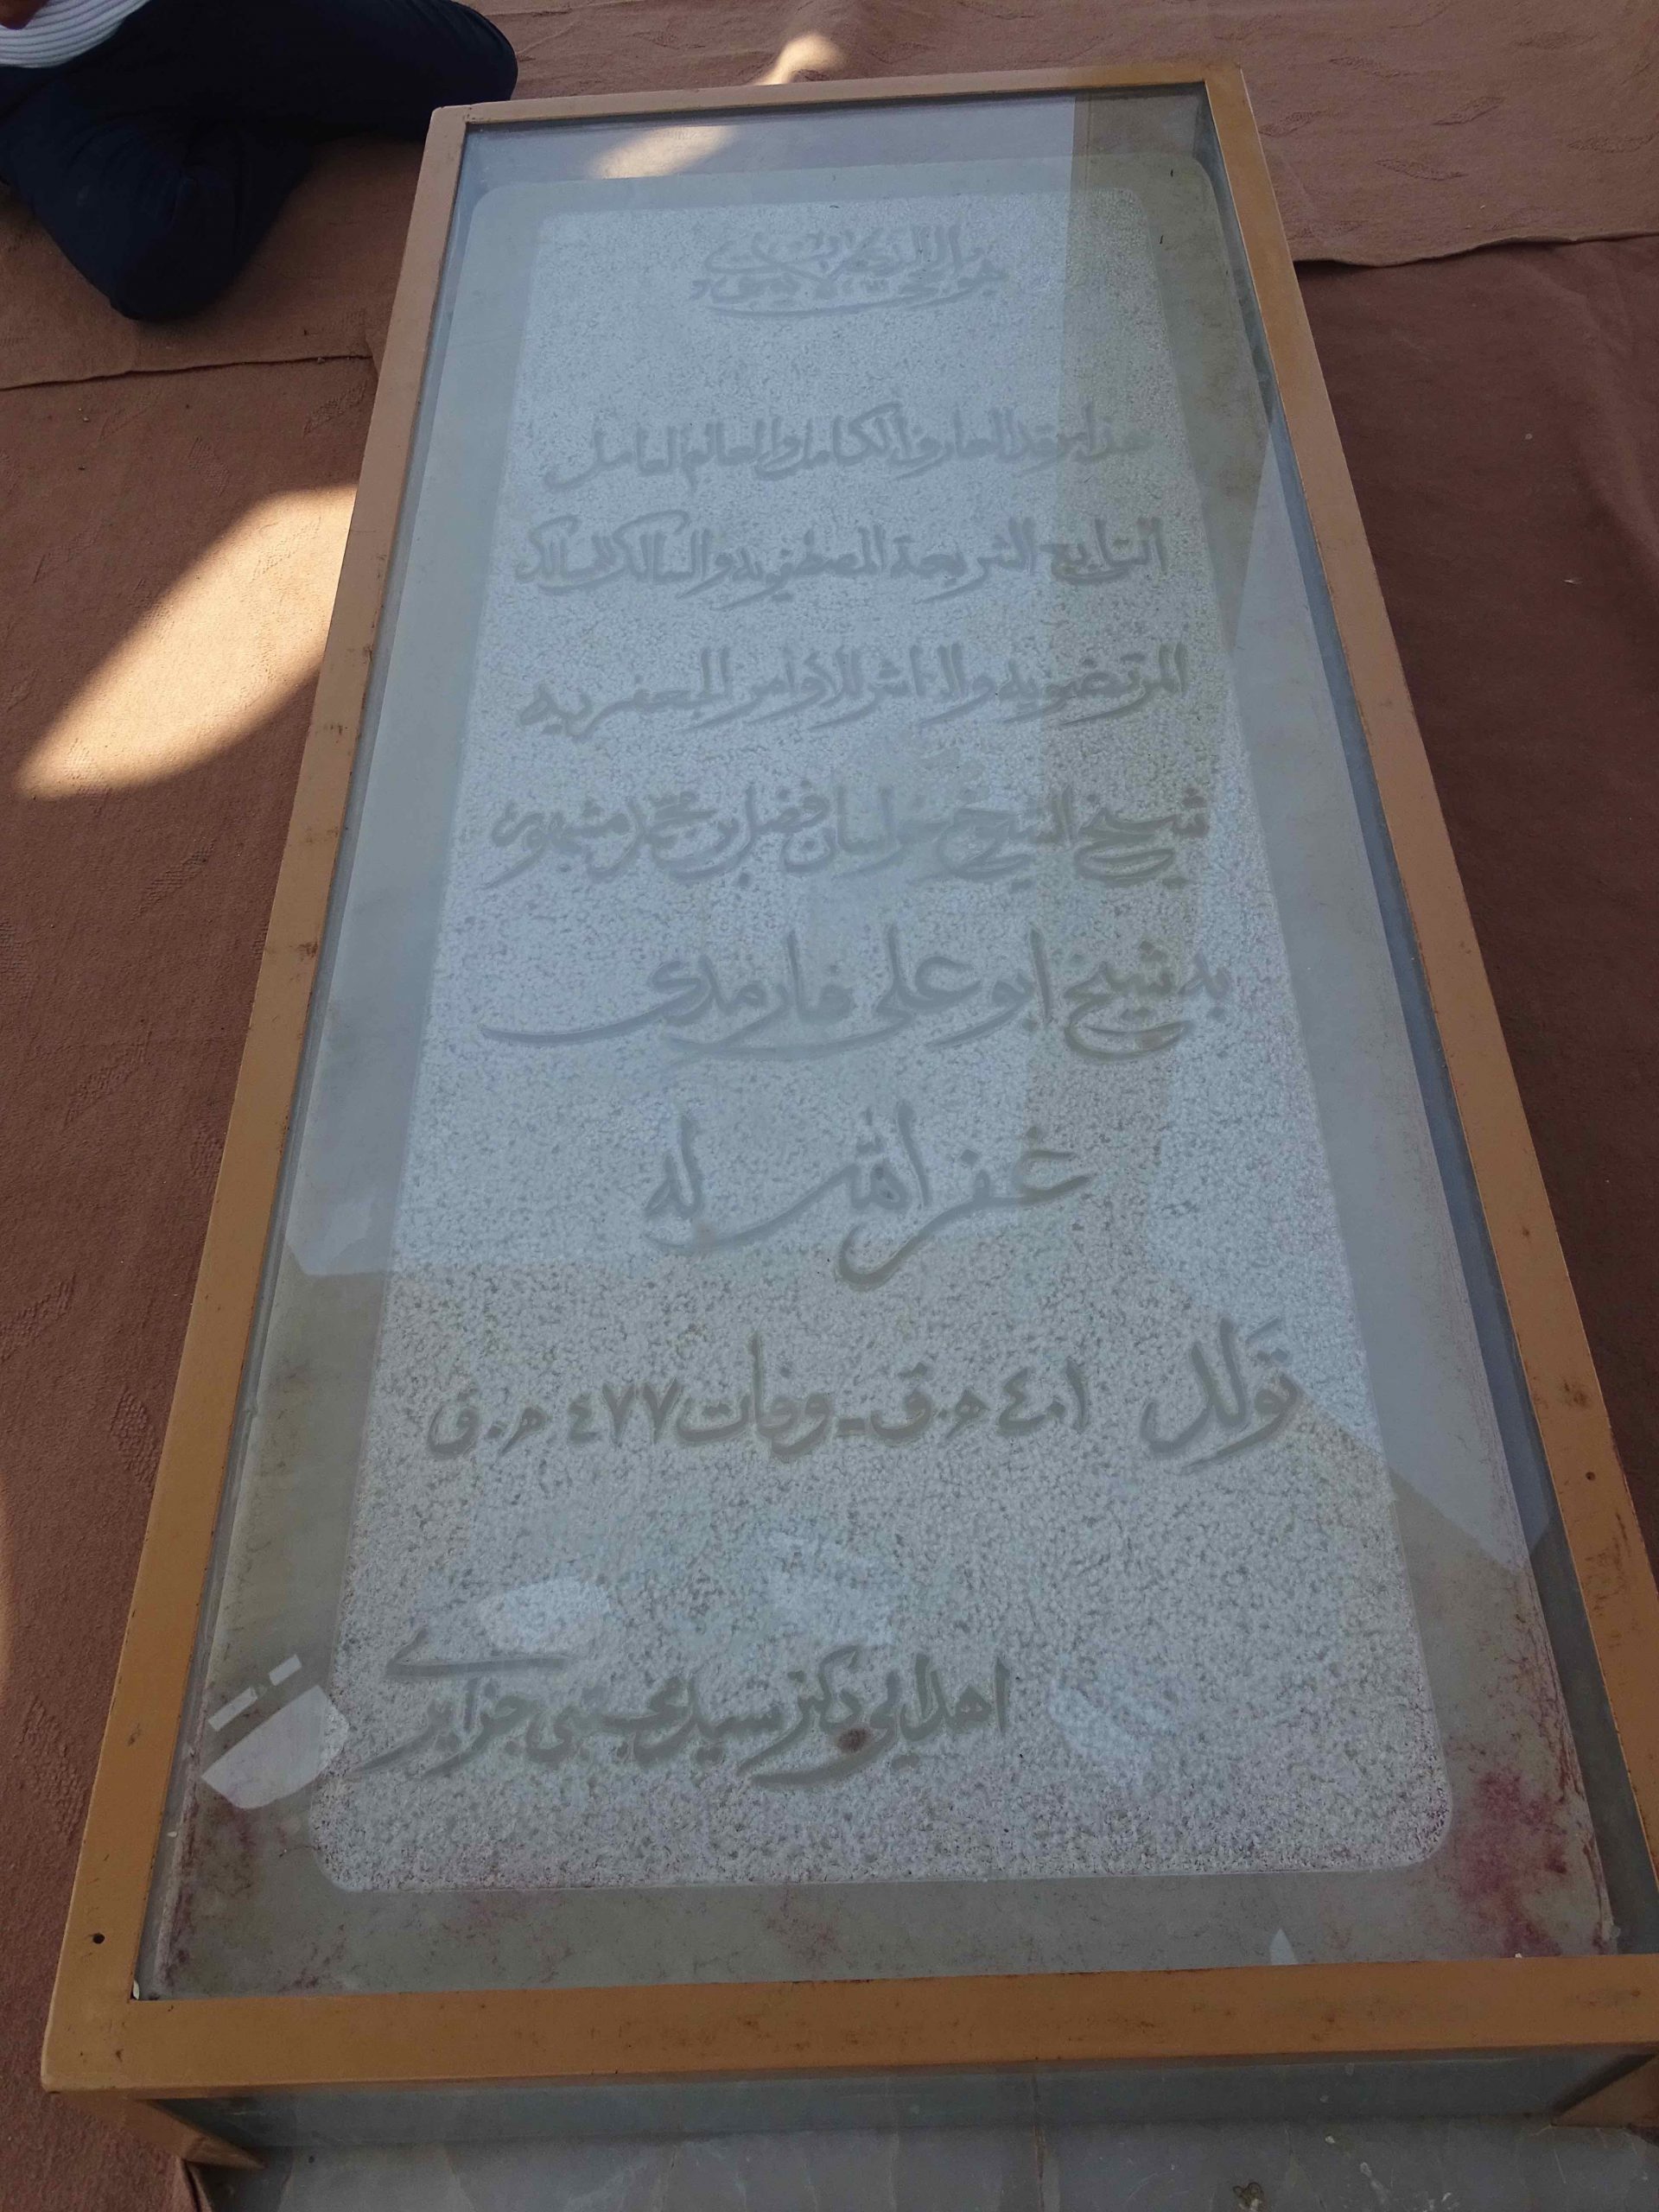 هو الحی الذی لا یموت
هذا مرقد العارف الکامل والعالم العامل
التابع الشریعة المصطفویه والسالک المسالک
المرتضویه والناشر للاوامر الجعفریه
شیخ الشیخ خراسان فضل بن محمد مشهور
به شیخ ابوعلی فارمدی
غفر الله له
تولد ٤٠١ ه.ق - وفات ٤٧٧ ه.ق
اهدایی دکتر سید مجتبی جزایری